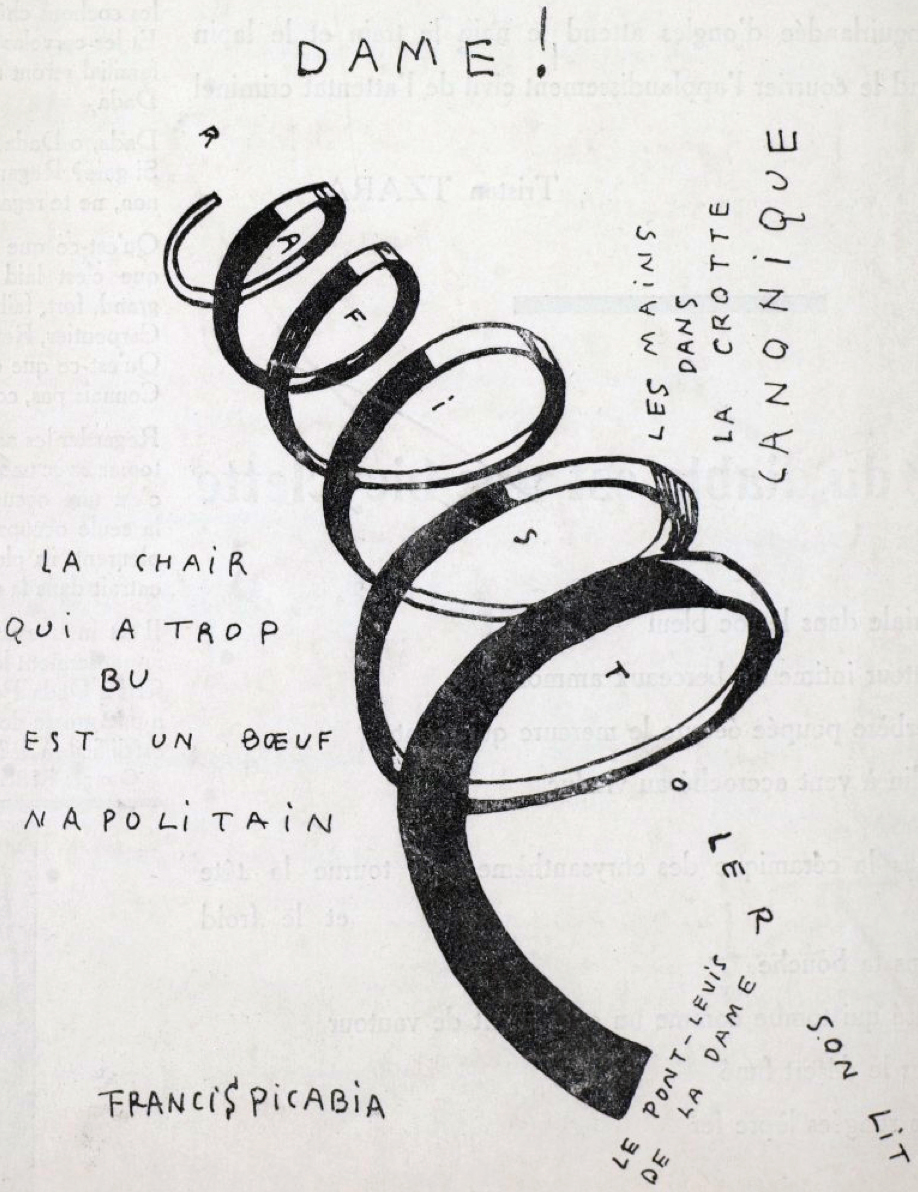 DAME !
RAFiSTOLER SON LiT
LES MAiNS
DANS
LA CROTTE
CANONiQUE
LA CHAiR
QUi A TROP
BU
EST UN BŒUF
NAPOLiTAiN
LE PONT-LEViS
DE LA DAME
FRANCiS PiCABiA